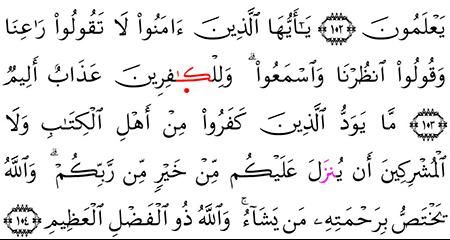 يَعْلَمُونَ ١٠٢ يَـٰٓأَيُّهَا ٱلَّذِينَ ءَامَنُوا۟ لَا تَقُولُوا۟ رَٰعِنَا
وَقُولُوا۟ ٱنظُرْنَا وَٱسْمَعُوا۟ ۗ وَلِلْكَـٰفِرِينَ عَذَابٌ أَلِيمٌ
١٠٣ مَّا يَوَدُّ ٱلَّذِينَ كَفَرُوا۟ مِنْ أَهْلِ ٱلْكِتَـٰبِ وَلَا
ٱلْمُشْرِكِينَ أَن يُنزَلَ عَلَيْكُم مِّنْ خَيْرٍ مِّن رَّبِّكُمْ ۗ وَٱللَّهُ
يَخْتَصُّ بِرَحْمَتِهِۦ مَن يَشَآءُ ۚ وَٱللَّهُ ذُو ٱلْفَضْلِ ٱلْعَظِيمِ ١٠٤